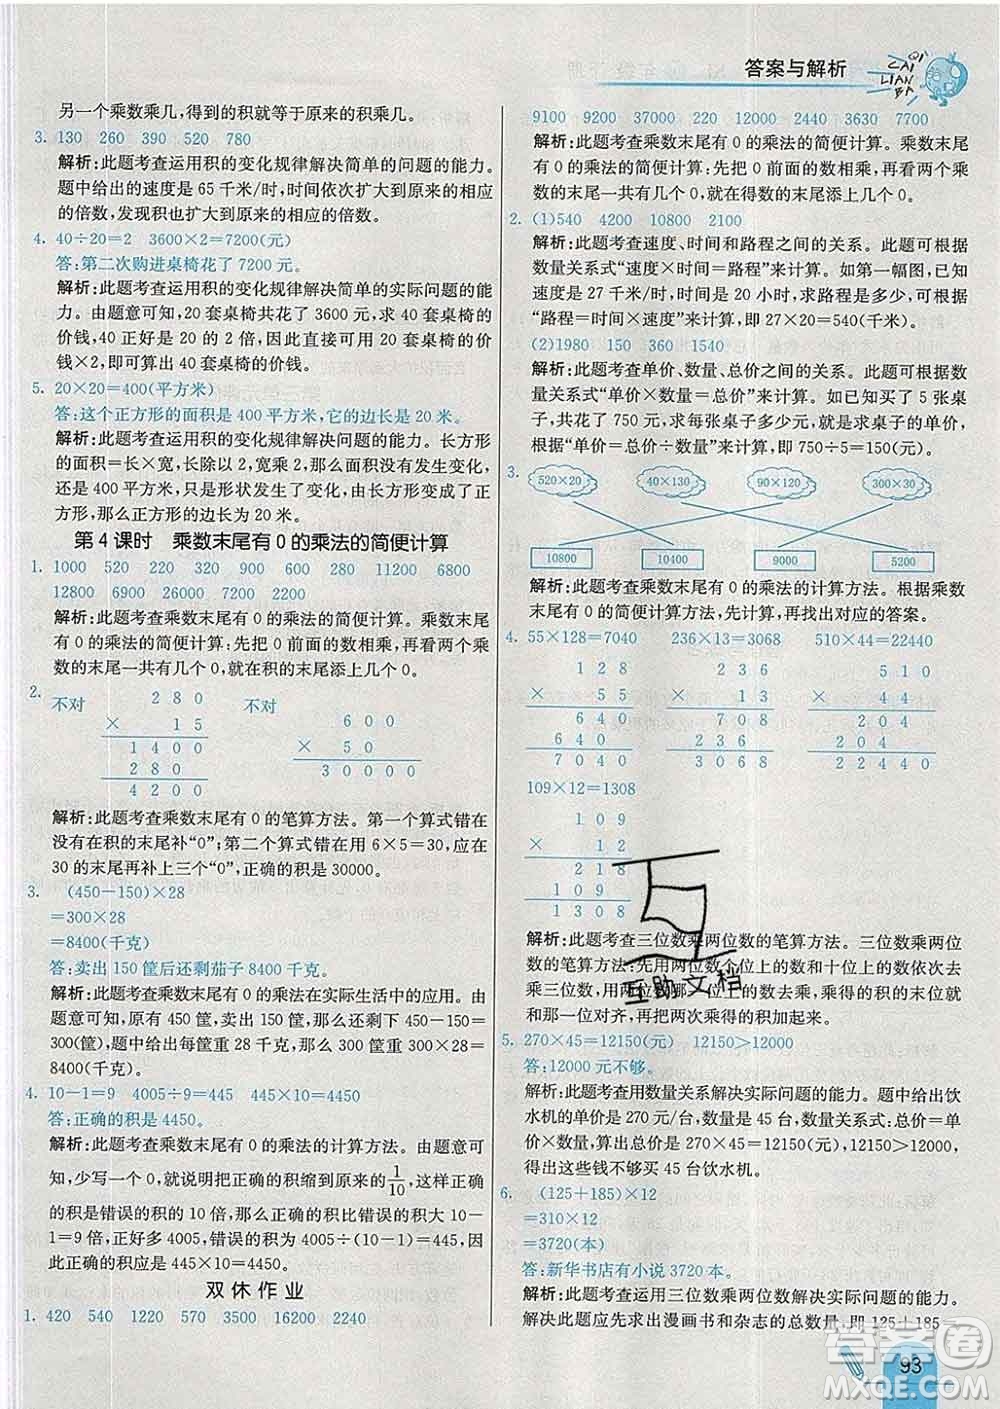 答案与解析
QI
CAI
LIAN
BA
另一个乘数乘几，得到的积就等于原来的积乘几。
3. 130 260 390 520 780
解析：此题考查运用积的变化规律解决简单的问题的能力。
题中给出的速度是 65 千米/时，时间依次扩大到原来的相应
的倍数，发现积也扩大到原来的相应的倍数。
4. 40÷20=2 3600×2=7200(元)
答：第二次购进桌椅花了 7200 元。
解析：此题考查运用积的变化规律解决简单的实际问题的能
力。由题意可知，20 套桌椅共花了 3600 元，求 40 套桌椅的
价钱，40 正好是 20 的 2 倍，因此直接可用 20 套桌椅的价
钱×2，即可算出 40 套桌椅的价钱。
5. 20×20=400(平方米)
答：这个正方形的面积是 400 平方米，它的边长是 20 米。
解析：此题考查运用积的变化规律解决问题的能力。长方形
的面积=长×宽，长除以 2，宽乘 2，那么面积没有发生变化，
还是 400 平方米，只是形状发生了变化，由长方形变成了正
方形，那么正方形的边长为 20 米。
第 4 课时 乘数末尾有 0 的乘法的简便计算
1. 1000 520 220 320 600 280 11200 6800
12800 6900 26000 7200 2200
解析：此题考查乘数末尾有 0 的乘法的简便计算。乘数末尾
有 0 的乘法的简便计算：先把 0 前面的数相乘，再看两个乘
数的末尾一共有几个 0，就在得数的末尾添上几个 0。
2. 不对 280 不对 600
× 15 × 50
1400 30000
280
4200
解析：此题考查乘数末尾有 0 的笔算方法。第一个算式错在
没有在积的末尾补“0”；第二个算式错在用 6×5=30，应在
30 的末尾再补上三个“0”，正确的积是 30000。
3. (450-150)×28
=300×28
=8400(千克)
答：卖出 150 筐后还剩茄子 8400 千克。
解析：此题考查乘数末尾有 0 的乘法在实际生活中的应用。由
题意可知，原有 450 筐，卖出 150 筐，那么还剩下 450-150=
300(筐)，题中给出每筐重 28 千克，300 筐重 300×28=
8400(千克)。
4. 10-1=9 4005÷9=445 445×10=4450
答：正确的积是 4450。
解析：此题考查乘数末尾有 0 的乘法的计算方法。由题意可
知，少写一个 0，就说明把正确的积缩小到原来的1/10，正确
的积是错误的积的 10 倍，那么正确的积比错误的积大 10-
1=9 倍，正好多 4005，错误的积为 4005÷(10-1)=445，正
确的积应是 445×10=4450。
双休作业
1. 420 540 1220 750 3500 16000 2240
9100 9200 37000 220 12000 2440 3630 7700
解析：此题考查乘数末尾有 0 的乘法的简便计算。乘数末尾
有 0 的乘法的简便计算：先把 0 前面的数相乘，再看两个乘
数的末尾一共有几个 0，就在得数的末尾添上几个 0。
2. (1)540 4200 10800 2100
解析：此题考查速度、时间和路程之间的关系。此题可根据
数量关系式“速度×时间=路程”来计算。如第一幅图，已知
速度是 27 千米/时，时间是 20 小时，求路程是多少，可根据
“路程=时间×速度”来计算，即 27×20=540(千米)。
(2)1980 150 360 1540
解析：此题考查单价、数量、总价之间的关系。此题可根据
数量关系式“单价×数量=总价”来计算。如果买了 5 张桌
子，共花了 750 元，求每张桌子多少元，就是求桌子的单价，
可根据“单价=总价÷数量”来计算，即 750÷5=150(元)。
3. 520×20 40×130 90×120 300×30
10800 10400 9000 5200
解析：此题考查乘数末尾有 0 的乘法的计算方法。根据乘数
末尾有 0 的简便计算方法，先计算，再找出对应的答案。
4. 55×128=7040 236×13=3068 510×44=22440
128 236 510
× 55 × 13 × 44
640 708 204
640 236 204
7040 3068 22440
109×12=1308
109
× 12
218
109
1308
解析：此题考查三位数乘两位数的笔算方法。三位数乘两位
数的笔算方法：先用两位数个位上的数和十位上的数依次去
乘三位数，用两位数那一位上的数去乘，乘得的积的末位就
和那一位对齐，再把两次乘得的积加起来。
5. 270×45=12150(元) 12150>12000
答：12000 元不够。
解析：此题考查用数量关系解决实际问题的能力。题中给出饮
水机的单价是 270 元/台，数量是 45 台，数量关系式：总价=单
价×数量，算出总价是 270×45=12150(元)，12150>12000，
说明这些钱不够买 45 台饮水机。
6. (125+185)×12
=310×12
=3720(本)
答：新华书店有小说 3720 本。
解析：此题考查运用三位数乘两位数解决实际问题的能力。
解决此题应先求出漫画书和杂志的总数量，即 125+185=
互助文档
93
答案圈
MXQE.COM